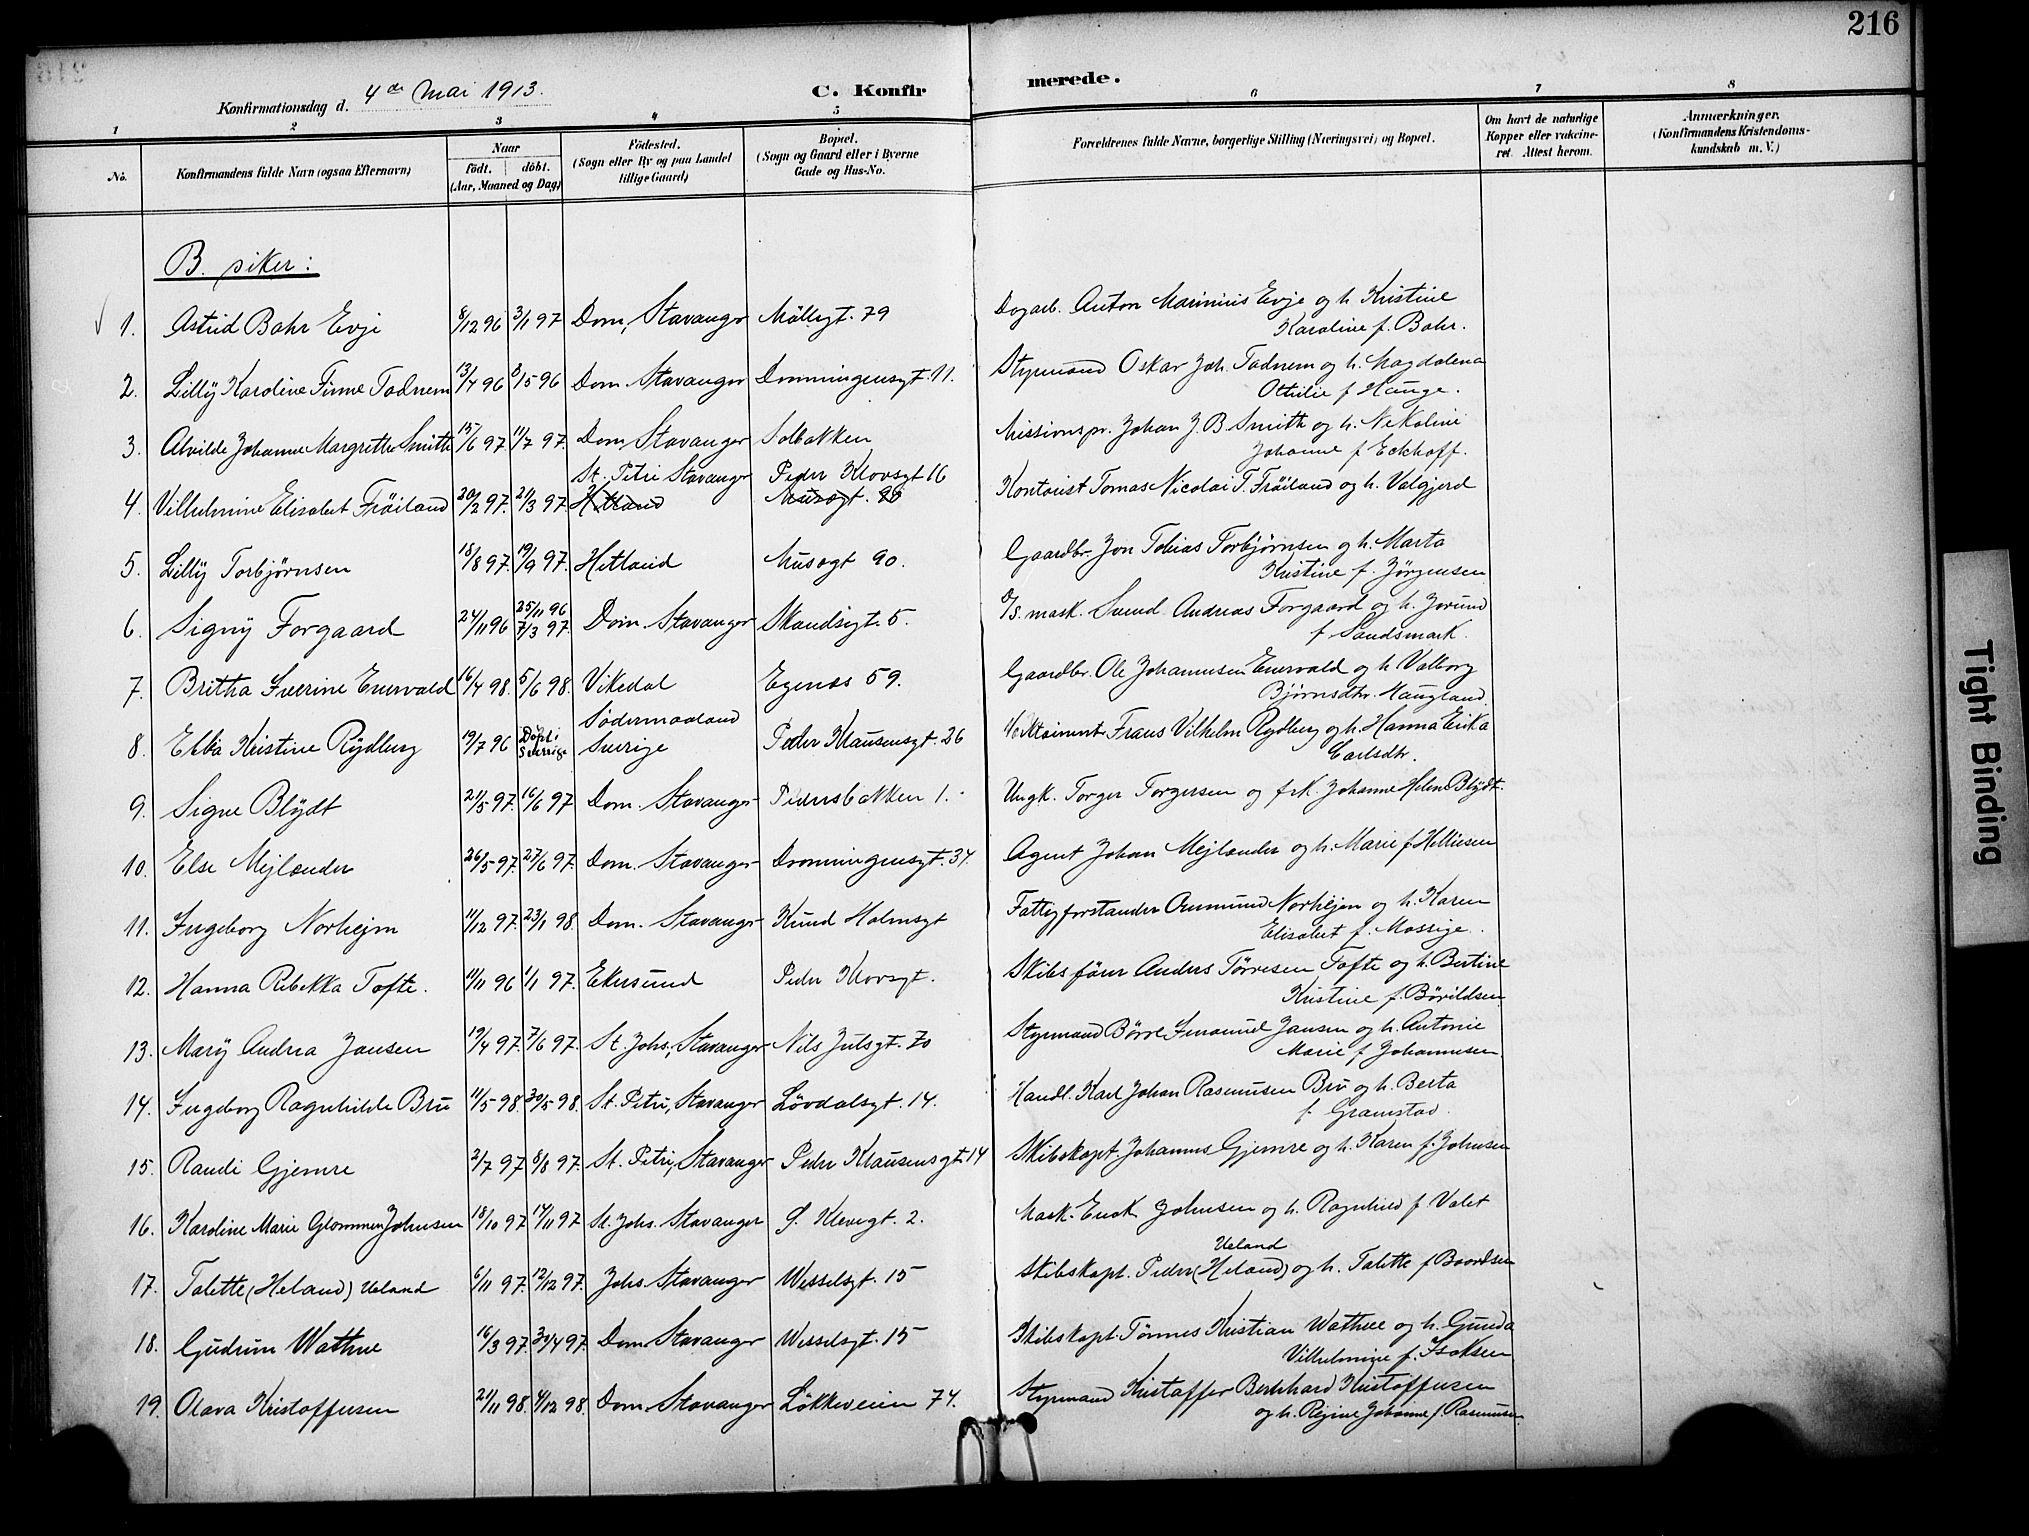 216
Konfirmationsdag d. 4de Mai 1913. C. Konfirmerede.
1 2 3 4 5 6 7 8
No. Konfirmandens fulde Navn (ogsaa Efternavn) Naar födt. döbt. (Aar, Maaned og Dag) Födested. (Sogn eller By og paa Landet tillige Gaard) Bopæl. (Sogn og Gaard eller i Byerne Gade og Hus-No. Forældrenes fulde Navne, borgerlige Stilling (Næringsvei) og Bopæl. Om havt de naturlige Kopper eller vakcineret. Attest herom. Anmærkninger. (Konfirmandens Kristendomskundskab m. V.)
B. piker:
1. Astrid Bahr Evje 8/12 96 3/1 97 Dom, Stavanger Möllegt. 79 Dagarb. Anton Marinius Evje og h. Kristine
Karoline f. Bahr.
2. Lilly Karoline Finne Tadnem 13/4 96 5 96 Dom. Stavanger Dronningensgt. 11. Styrmand Oskar Joh. Tadnem og h. Magdalena
Othilie f Hauge.
3. Alvilde Johanne Margrethe Smith 15/6 97 11/7 97. Dom Stavanger Solbakken Missionspr. Johan J. B. Smith og h. Nekoline
Johanne f Eckhoff.
St. Petri Stavanger Peder Klovsgt 16
4. Vilhelmine Elisabet Fröiland 20/2 97. 21/3 97. Hetland Musegt. 90 Kontorist Tomas Nicolai T. Fröiland og h. Valgjerd
5. Lilly Torbjørnsen 18/8 97. 19/9 97. Hetland Musegt 90. Gaardbr. Jon Tobias Torbjørnsen og h. Marta
Kristine f. Jörgensen
6. Signy Forgaard 24/11 96 25/11 96 7/3 97. Dom. Stavanger Skandsegt. 5. mask. Svend Andreas Forgaard og h. Jorund
f Sandsmark.
7. Britha Severine Enervald 16/4 98. 5/6 98. Vikedal Egenes 59. Gaardbr. Ole Johannesen Enervald og h Valborg
Björnsdtr. Haugland
8. Ebba Kristine Rydberg 19/7 96 Döpt i Sverige Södermanland Sverige Peder Klausensgt. 26 Frans Vilhelm Rydberg og h. Hanna Erika
Carlsdtr.
9. Signe Blydt 21/5 97. 16/6 97 Dom. Stavanger Pedersbakken 1. Ungk. Torger Torgersen og frk. Johanne Helene Blydt.
10. Else Mejlænder 26/5 97. 27/6 97. Dom. Stavanger Dronningensgt. 34. Agent Johan Mejlænder og h. Marie f Helliesen
11. Ingeborg Norheim 11/12 97. 23/1 98. Dom. Stavanger Knud Holmsgt Fattigforstander Aumund Norheim og h. Karen
Elisabet f. Mossige.
12. Hanna Rebekka Tofte. 11/11 96 1/1 97. Ekersund Peder Klovsgt. Skibsförer Anders Törresen Tofte og h. Bertine
Kristine f. Bövildsen
13. Mary Andrea Jansen 19/4 97. 7/6 97. St. Johs, Stavanger Nils Julsgt. 70 Styrmand Börre Emanuel Jansen og h. Antonie
Marie f Johannesen
14. Ingeborg Ragnhilde Bru 11/5 98. 30/5 98. St. Petri, Stavanger Lövdalsgt. 14. Handl. Karl Johan Rasmussen Bru og h. Berta
f. Gramstad.
15. Randi Gjemre 2/7 97 8/8 97. St. Petri, Stavanger Peder Klausensgt. 14 Skibskapt. Johannes Gjemre og h. Karen f. Johnsen
16. Karoline Marie Glommen Johnsen 18/10 97 14/11 97 St. Johs. Stavanger S. Klevegt. 2. Mask. Johnsen og h. Ragnhild f Valet
Ueland
17. Talette (Heland) Ueland 6/11 97. 12/12 97. Johs. Stavanger Wesselsgt. 15 Skibskapt. Peder (Heland) og h. Talette f Baardsen
18. Gudrun Wathne 16/3 97. 30/4 97. Dom. Stavanger Wesselsgt. 15 Skibskapt. Tönnes Kristian Wathne og h. Gunda
Vilhelmine f. Isaksen
19. Olava Kristoffersen 21/11 98. 4/12 98. Dom. Stavanger Lökkeveien 74. Styrmand Kristoffer Bernhard Kristoffersen
og h. Regine Johanne f. Rasmussen
Tight Binding